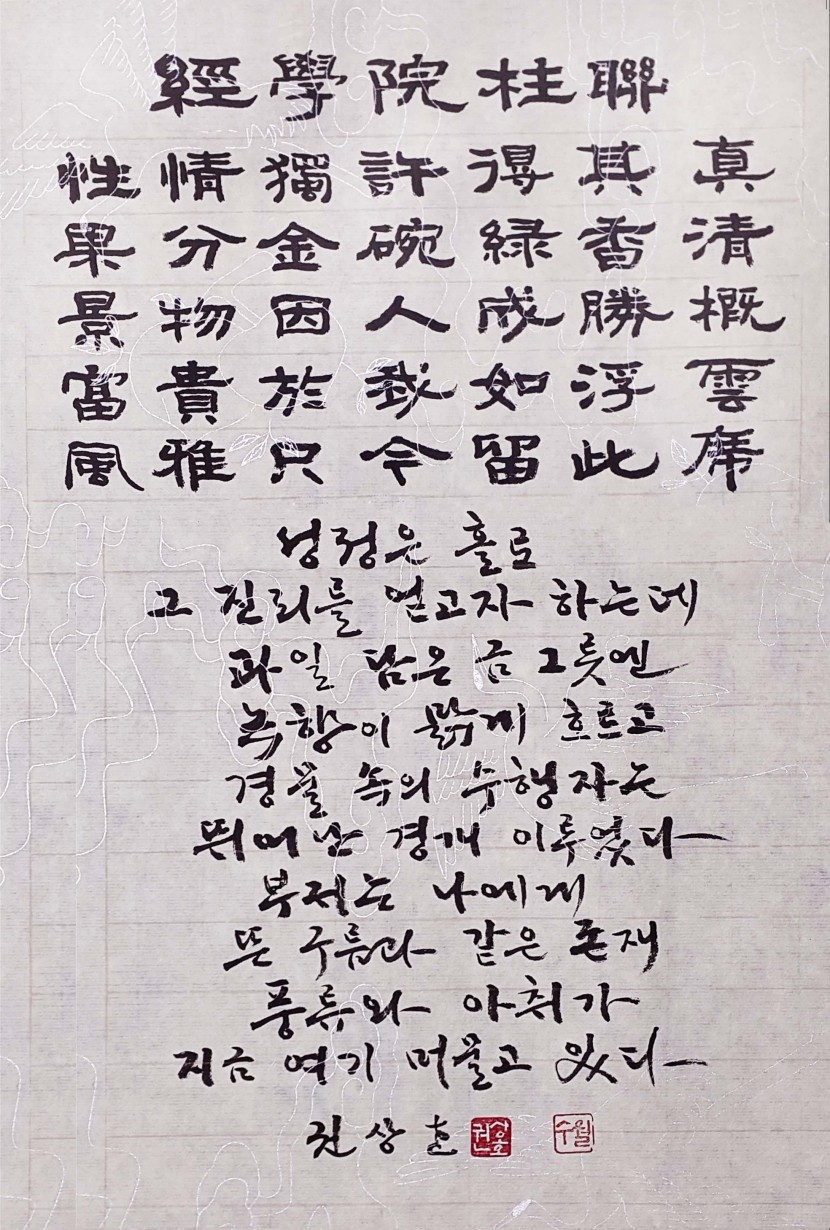 經學院柱聯
性情獨許得其真
果分金碗緑香清
景物因人成勝概
富貴於我如浮雲
風雅只今留此席
성정은 홀로
그 진리를 얻고자 하는데
과일 담은 금 그릇엔
녹향이 맑게 흐르고
경물 속의 수행자는
뛰어난 경개 이루었다
부귀는 나에게
뜬 구름과 같은 존재
풍류와 아취가
지금 여기 머물고 있다
권상호 권상호 수월